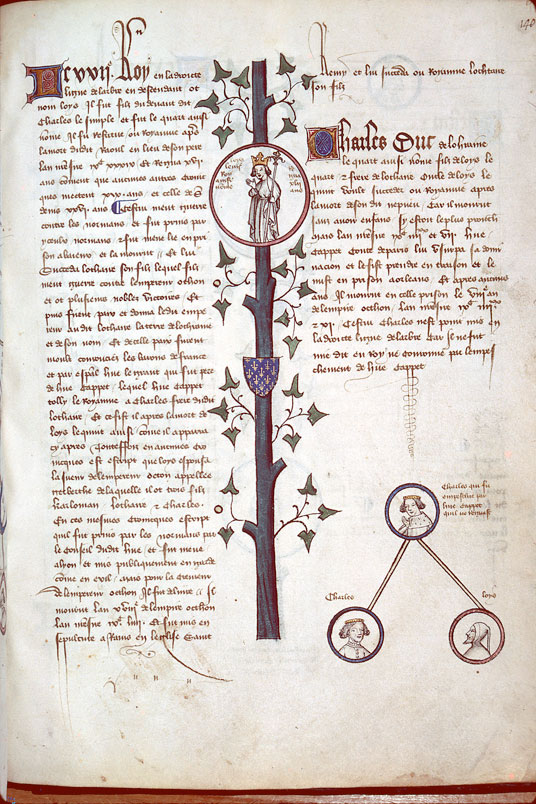 140
Le xvii.e Roy en la droicte
ligne de larbre en descendant ot
nom loys Il fut filz du devant dit
Charles le simple et fut le quart ainsi
nome Il fu Restitue ou Royaume apres
la mort dudit Raoul en lieu de son pere
lan mesme ixc xxxiv Et Regna xvii
ans coment que aucunes autres Croniques
mectent xxv ans et celle de S
denis xxvi ans Cestui ment guerre
contre les normans et fut prins par
yceulx normans et fut mene lie en prison
et la mourut Et lui
Succeda lothaire son filz lequel filz
ment guerre contre lempereur othon
et ot plusieurs nobles victoires Et
puis firent paix et donna ledit empereur
audit lothaire la terre de lothraine
et de son nom Et de celle paix furent
moult les barons de france
et par especial hue le grant qui fut pere
de hue Cappet lequel hue Cappet
tolly le Royaume a Charles frere dudit
lothaire Et ce fist il apres la mort de
loys le quint ainsi come il apparra
cy apres Toutesfois en aucunes Croniques
est escript que loys espousa
la suer de lempereur octon appellee
de laquelle il ot trois filz
karloman lothaire et Charles
En ces mesmes Croniques escript
quil fut prins par les normans par
le Conseil dudit hue et fut mene
a lyon et mis publiquement en garde
come en exil mais pour la cremeur
de lempereur othon Il fut delivre Il
mourut lan xviii de lempire othon
lan mesme ixc liiii Et fut mis en
sepulcre a Rains en leglise Saint
Remy et lui succeda ou Royaume lothaire
son filz
Charles Duc de lohraine
le quart ainsi nome filz de loys le
quart et frere de lothaire Oncle de loys le
quint voult succeder ou Royaume apres
la mort de son dit nepveu Car il mourut
sans avoir enfans Sy estoit le plus prouchain
mais lan mesme ixc iiiixx et vii hue
Cappet Conte de paris lui usurpa sa domi
nacion et le fist prendre en traison et le
mist en prison a orleans Et apres aucuns
ans Il mourut en celle prison le viii.e an
de lempire othon lan mesme ixc iiiixx
et xi Cestui Charles nest point mis en
la droicte ligne de larbre Car Il ne fut
mie dit ou Roy ne Couronne pour lempes
chement de hue Cappet
loys
Charles qui fu
empesche par
hue Cappet
quil ne regnast
Charles
loys